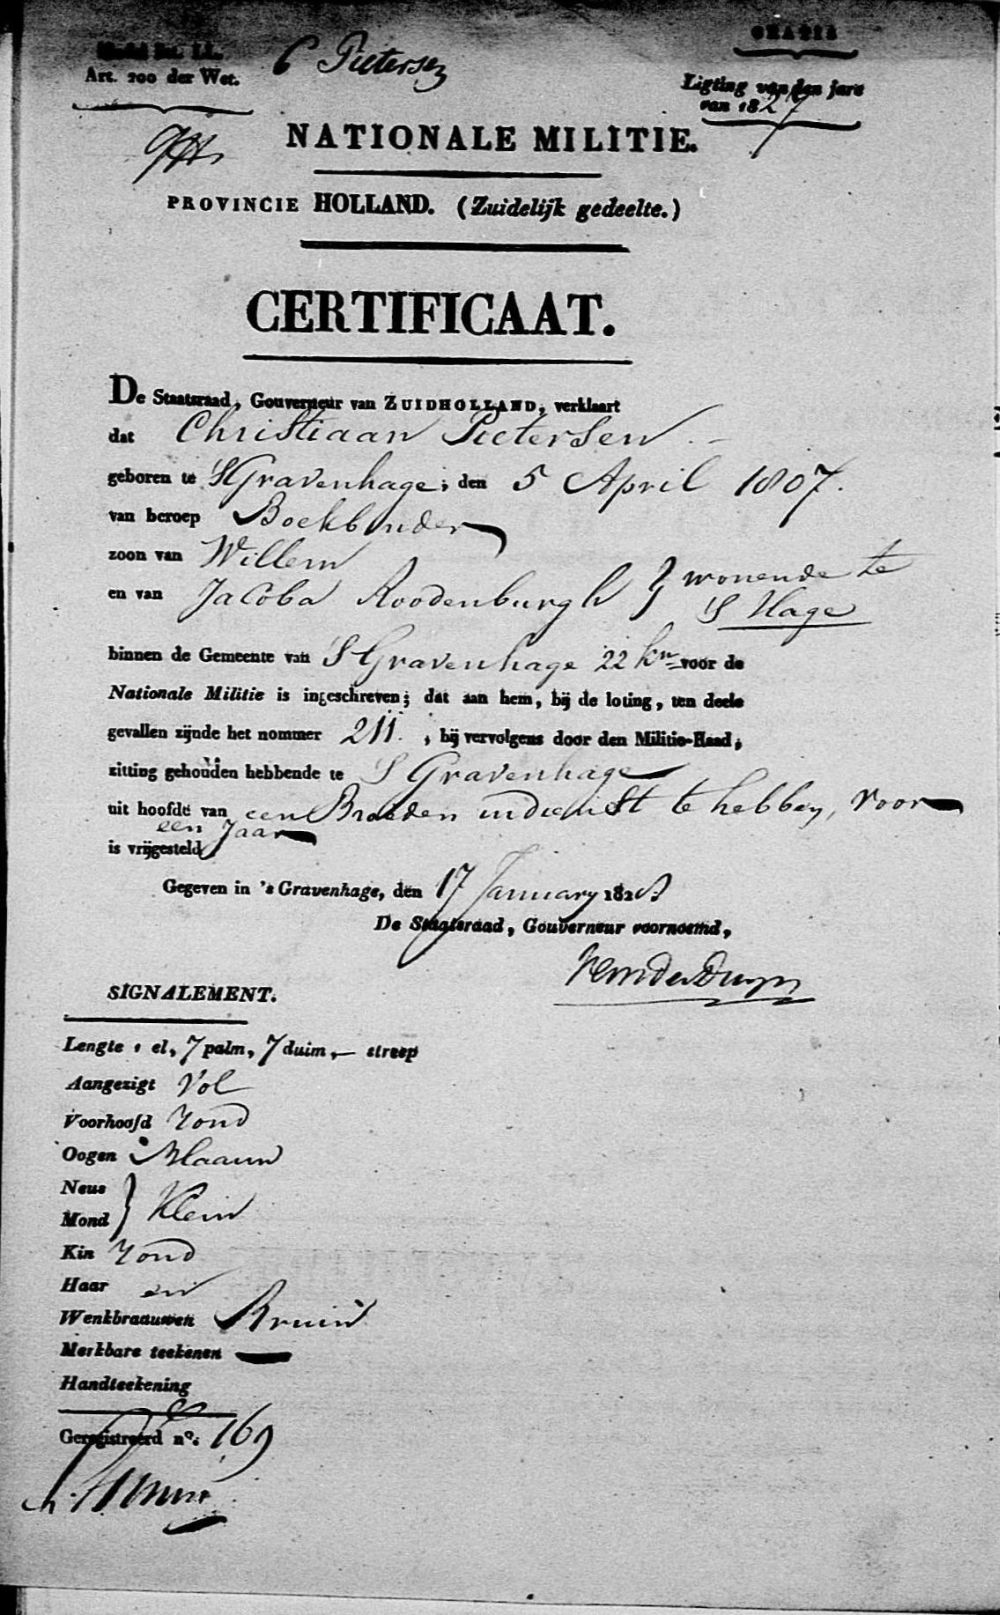 GRATIS
Model Lit. LL.
Art. 200 der Wet.
C Pietersen
Ligting van den jare
van 1827
NATIONALE MILITIE.
PROVINCIE HOLLAND. (Zuidelijk gedeelte.)
CERTIFICAAT.
De Staatsraad, Gouverneur van ZUIDHOLLAND, verklaart
dat Christiaan Pietersen
geboren te SGravenhage, den 5 April 1807.
van beroep Boekbinder
zoon van Willem
en van Jacoba Roodenburgh } wonende te
S Hage
binnen de Gemeente van SGravenhage 22 kn voor de
Nationale Militie is ingeschreven; dat aan hem, bij de loting, ten deele
gevallen zijnde het nommer 211. , hij vervolgens door den Militie-Raad,
zitting gehouden hebbende te S Gravenhage
uit hoofde van een Broeder in dienst te hebben, voor
een Jaar
is vrijgesteld
Gegeven in 's Gravenhage, den 17 January 1828
De Staatsraad, Gouverneur voornoemd,
VanderDuyn
SIGNALEMENT.
Lengte 1 el, 7 palm, 7 duim, — streep
Aangezigt Vol
Voorhoofd rond
Oogen Blaauw
Neus
Mond } Klein
Kin rond
Haar en
Wenkbraauwen Bruin
Merkbare teekenen —
Handteekening
Geregistreerd nº. 169